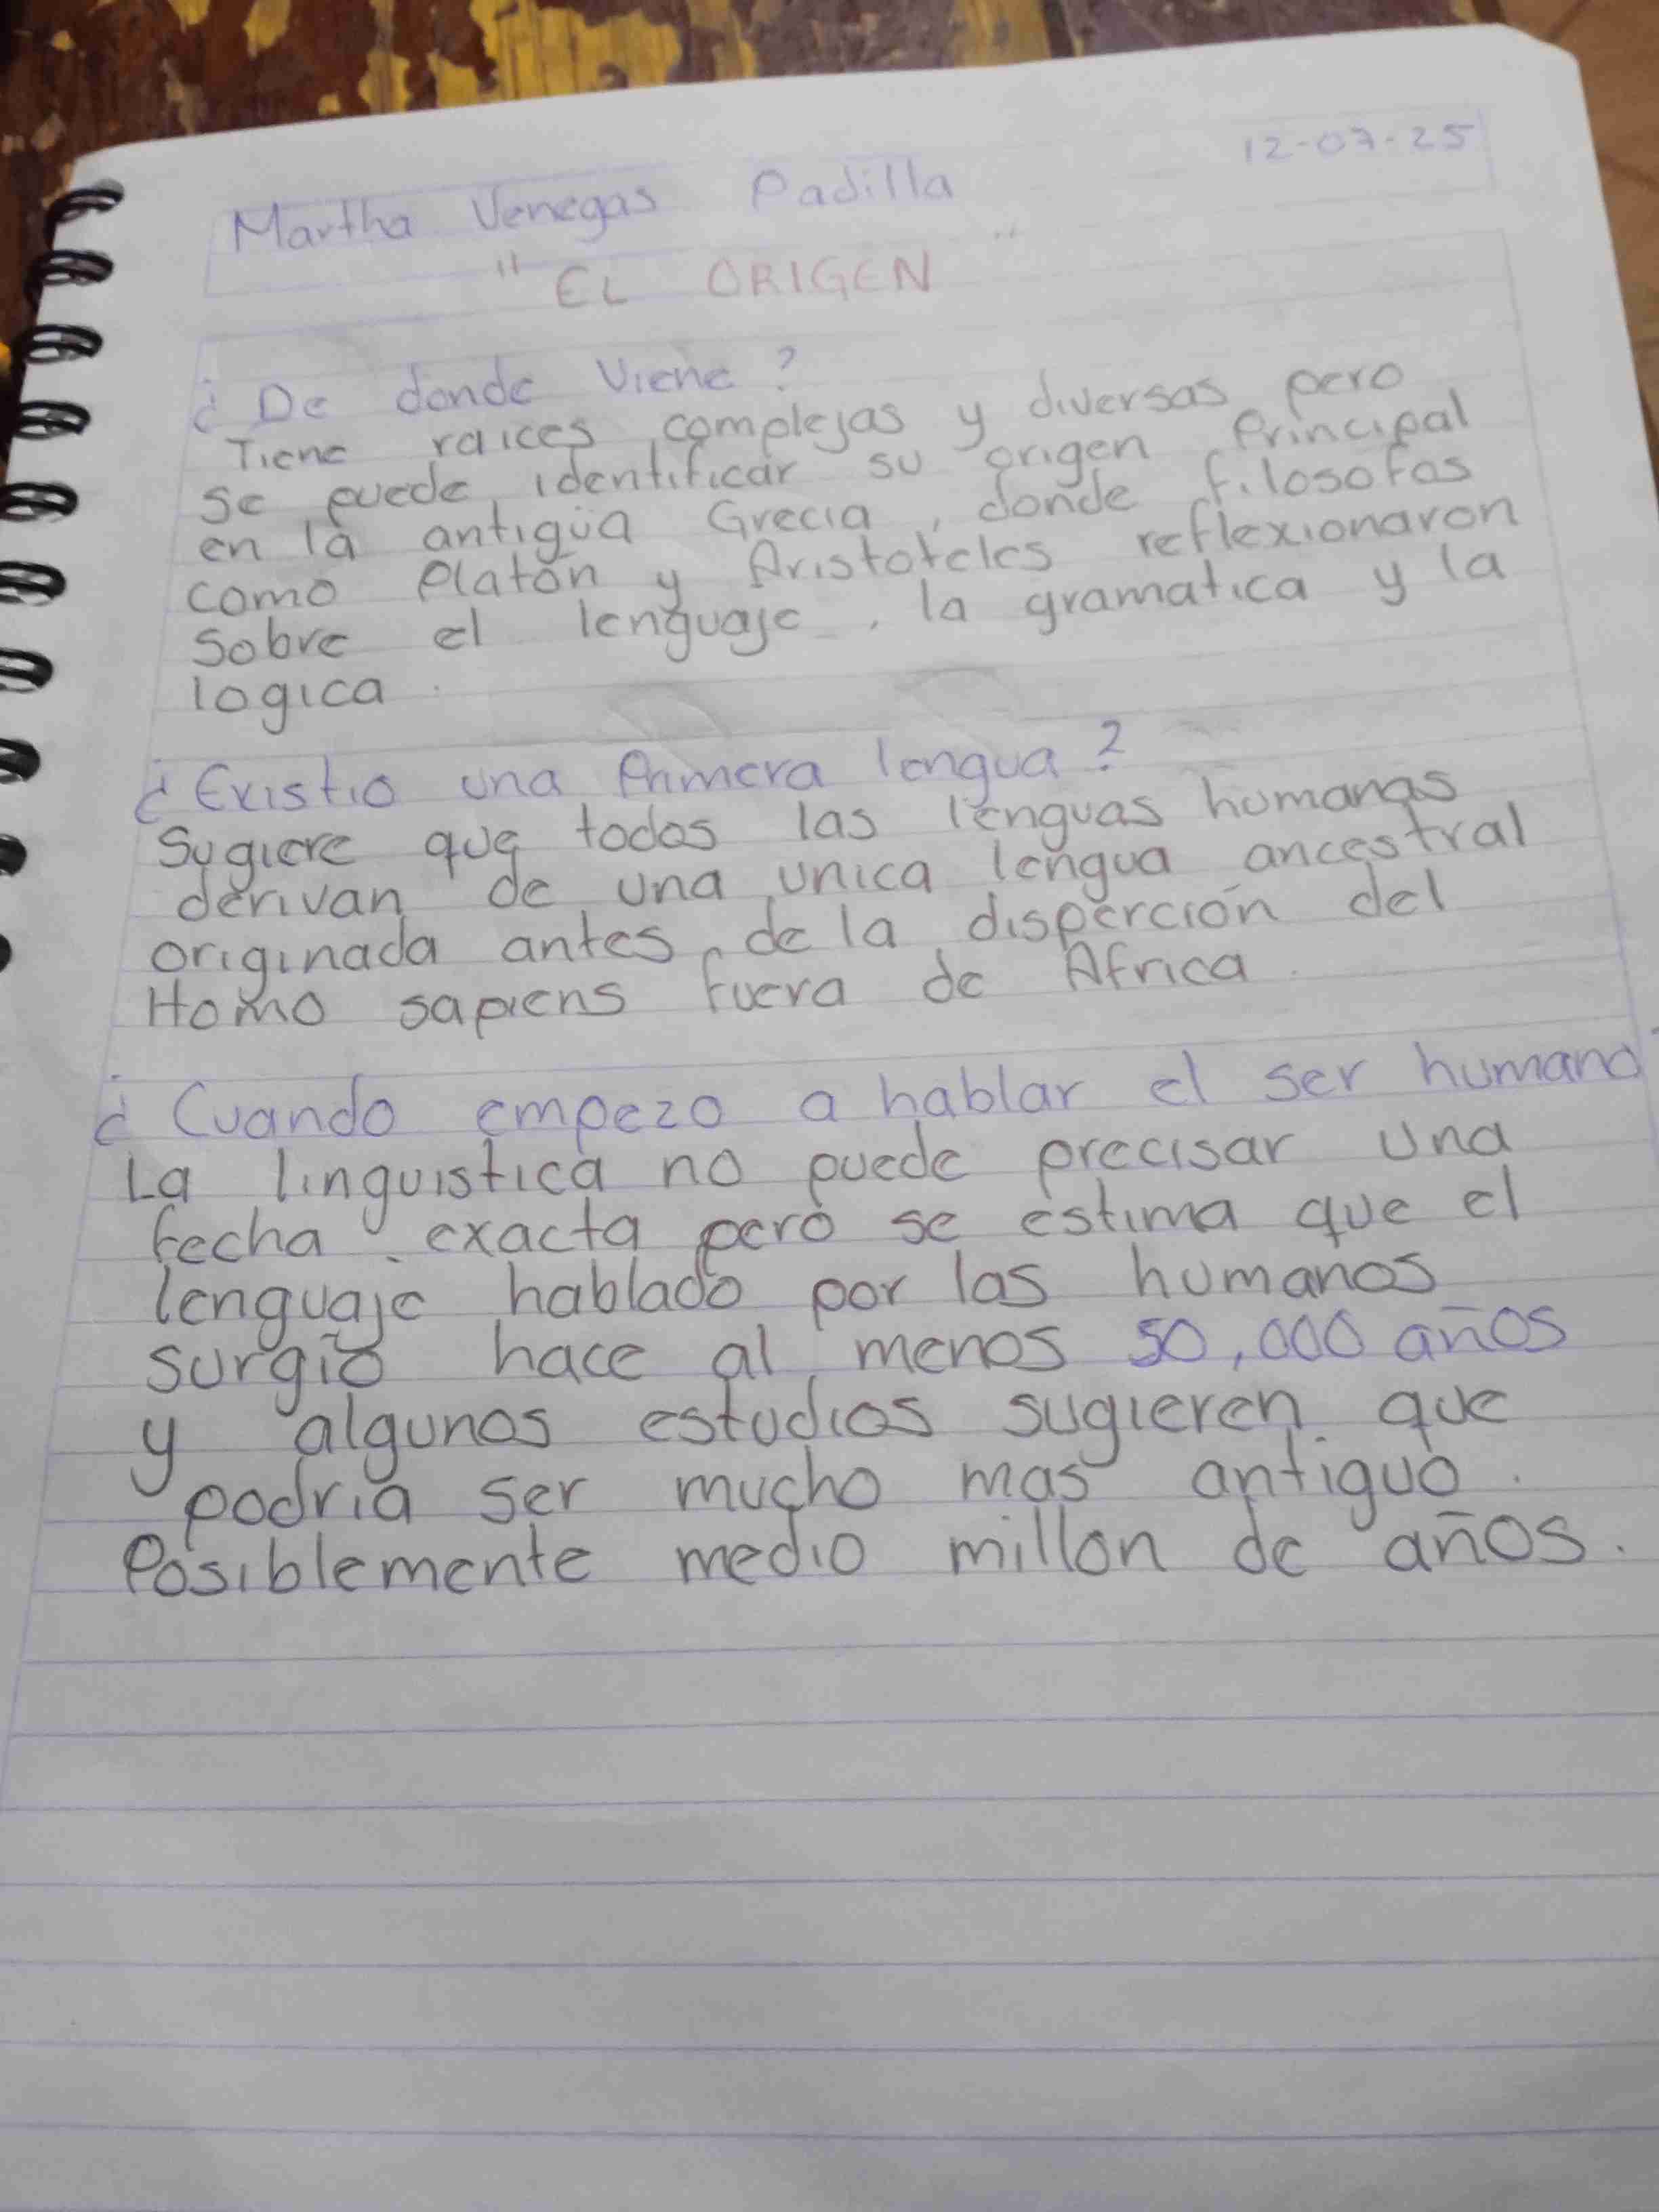 12-07-25
Martha Venegas Padilla
" EL ORIGEN "
¿ De donde Viene ?
Tiene raices complejas y diversas pero
se puede identificar su origen Principal
en la antigüa Grecia, donde filosofos
como Platón y Aristoteles reflexionaron
sobre el lenguaje, la gramatica y la
logica.
¿ Existio una Primera lengua ?
Sugiere que todas las lenguas humanas
derivan de una unica lengua ancestral
originada antes de la disperción del
Homo sapiens fuera de Africa.
¿ Cuando empezo a hablar el ser humano
La linguistica no puede precisar una
fecha exacta pero se estima que el
lenguaje hablado por los humanos
surgió hace al menos 50,000 años
y algunos estudios sugieren que
podria ser mucho mas antiguo.
Posiblemente medio millon de años.